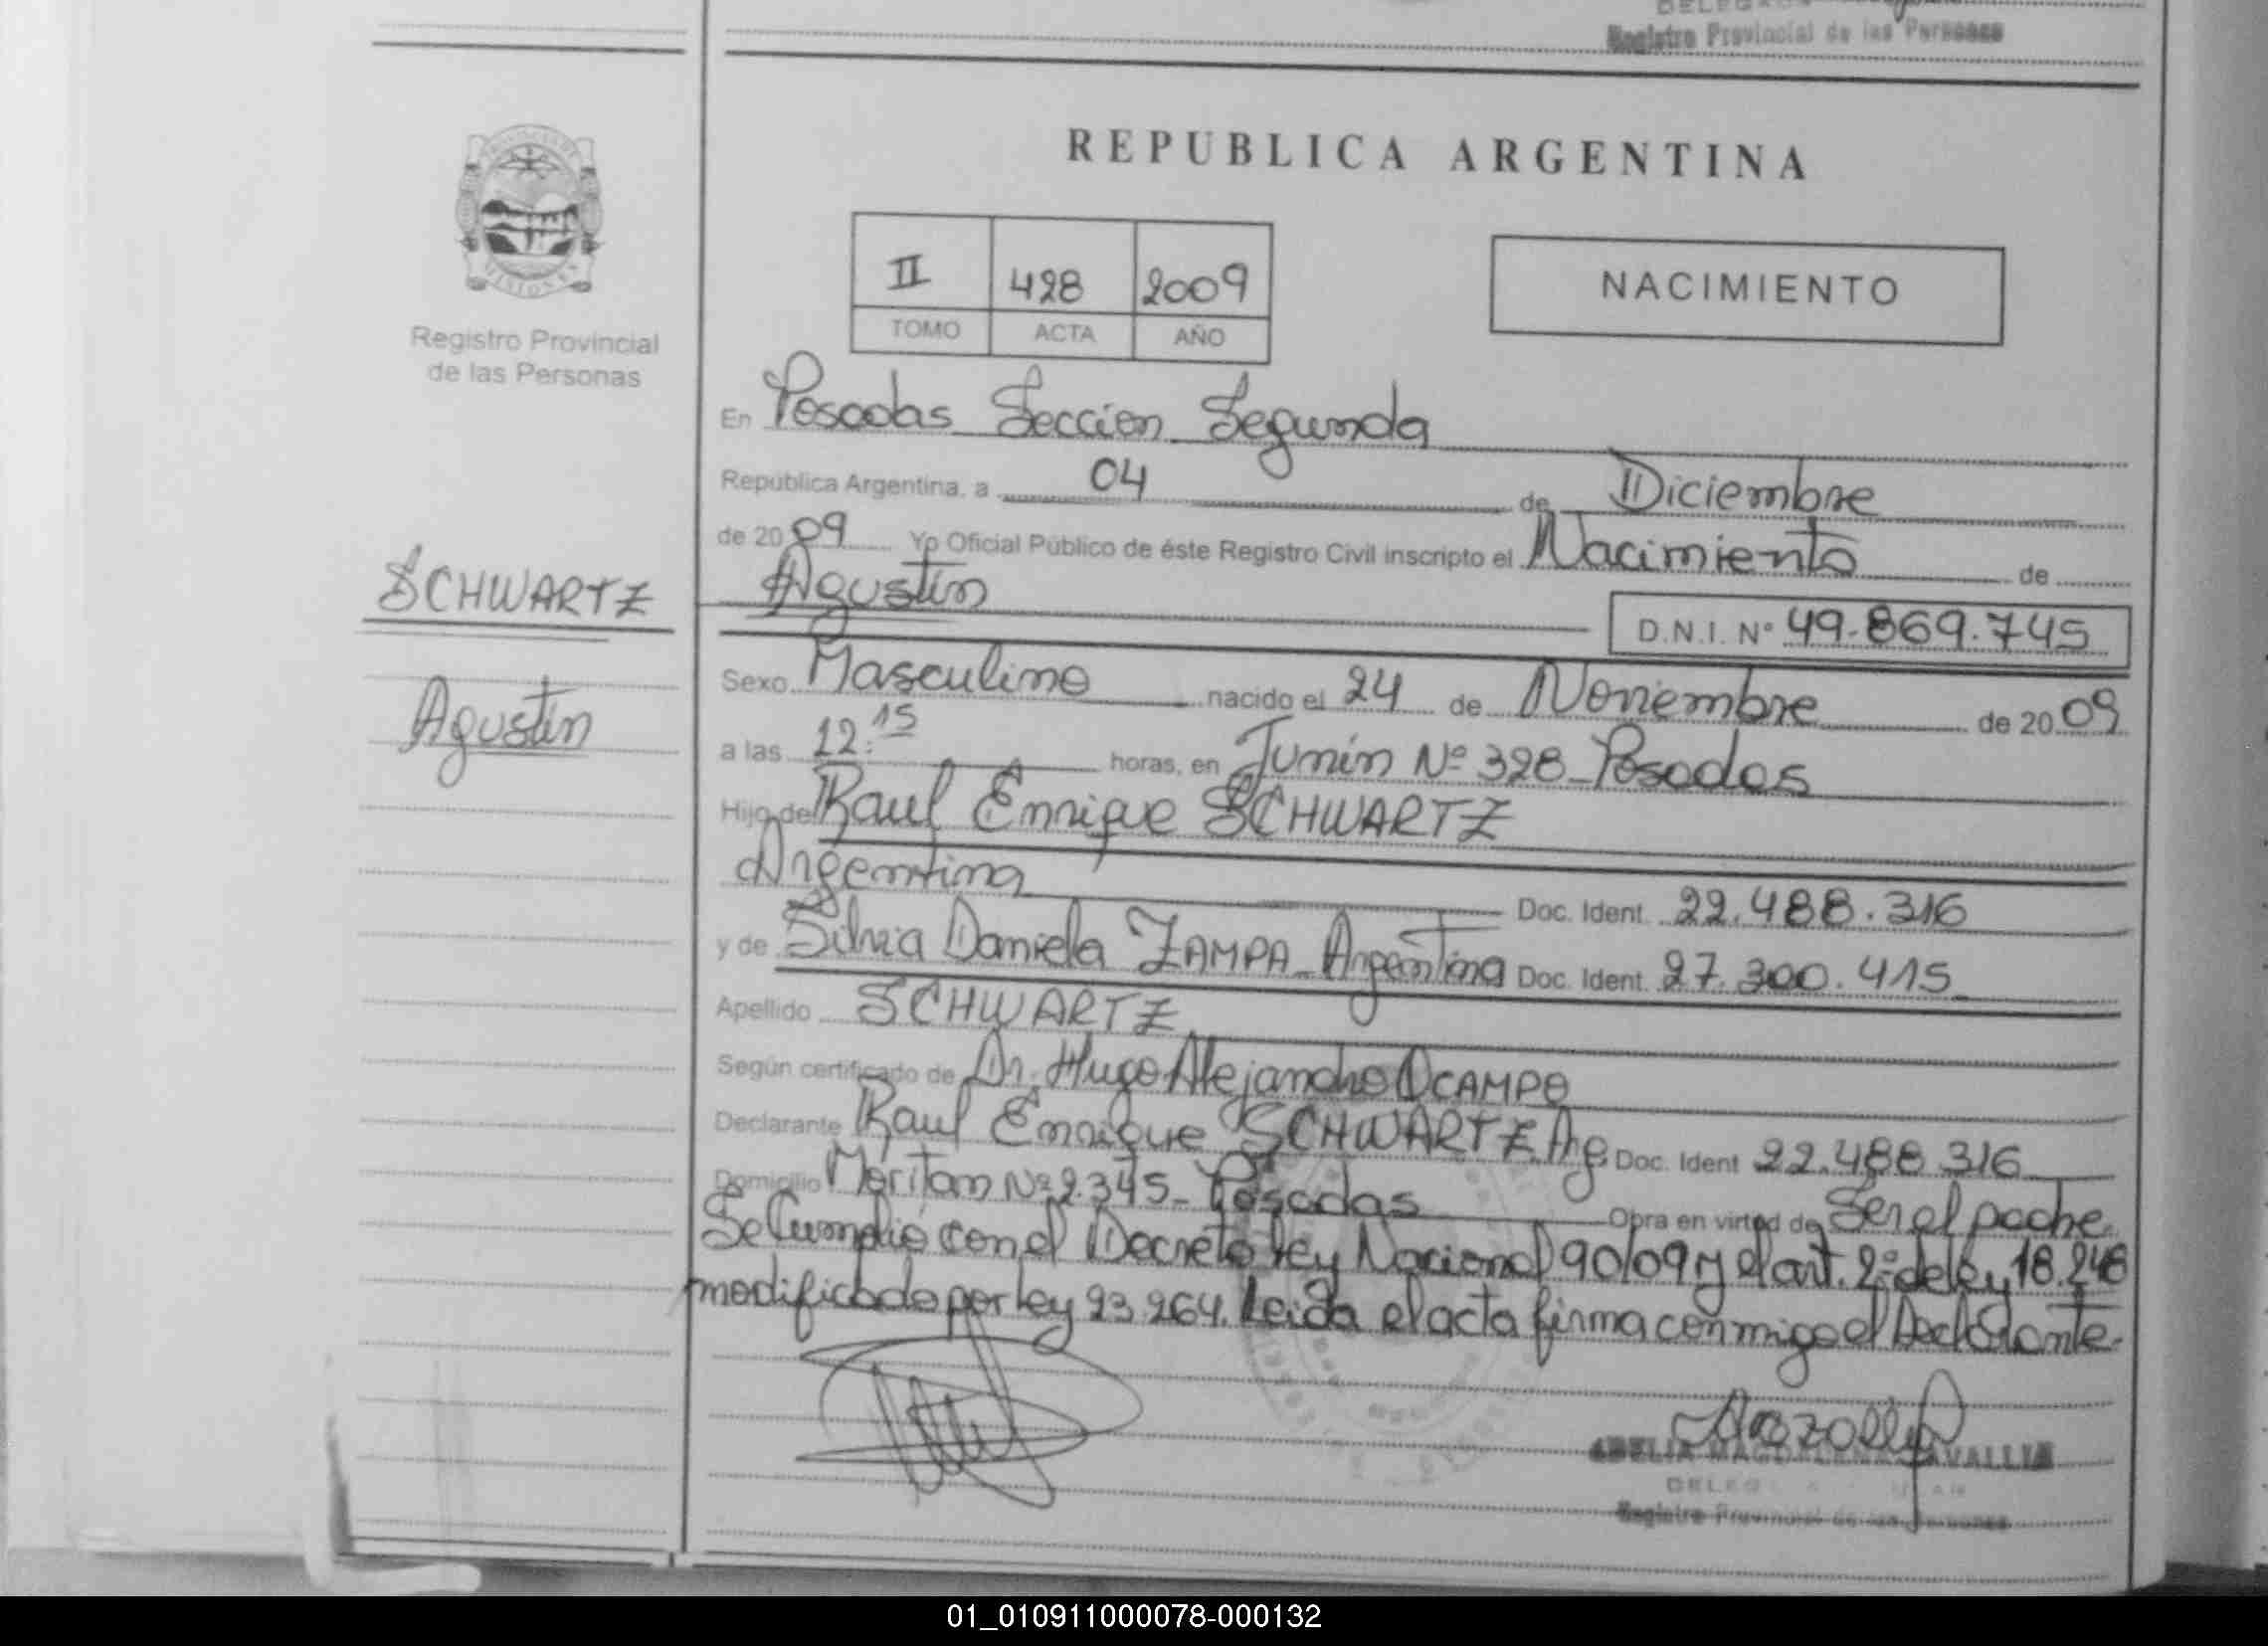 Registro Provincial de las Personas
REPUBLICA ARGENTINA
II 428 2009
TOMO ACTA AÑO
NACIMIENTO
MISIONES
Registro Provincial
de las Personas
SCHWARTZ
Agustin
En Posadas Seccion Segunda
República Argentina, a 04 de Diciembre
de 2009 Yo Oficial Público de éste Registro Civil inscripto el Nacimiento de
Agustin
D.N.I. N° 49.869.745
Sexo Masculino nacido el 24 de Noviembre de 2009
a las 12:15 horas, en Junín Nº 328 Posadas
Hijo de Raul Enrique SCHWARTZ
Argentina Doc. Ident. 22.488.316
y de Silvia Daniela ZAMPA Argentina Doc. Ident. 27.300.415
Apellido SCHWARTZ
Según certificado de Dr. Hugo Alejandro OCAMPO
Declarante Raul Enrique SCHWARTZ Arg Doc. Ident 22.488.316
Domicilio Nº 2.345 - Posadas Obra en virtud de Ser el padre.
Se Cumplió con el Decreto Ley Nacional 90/09 y el art. 2º de ley 18.248
modificado por ley 23.264. Leida el acta firma conmigo el Declarante.
Registro Provincial de las Personas
01_010911000078-000132